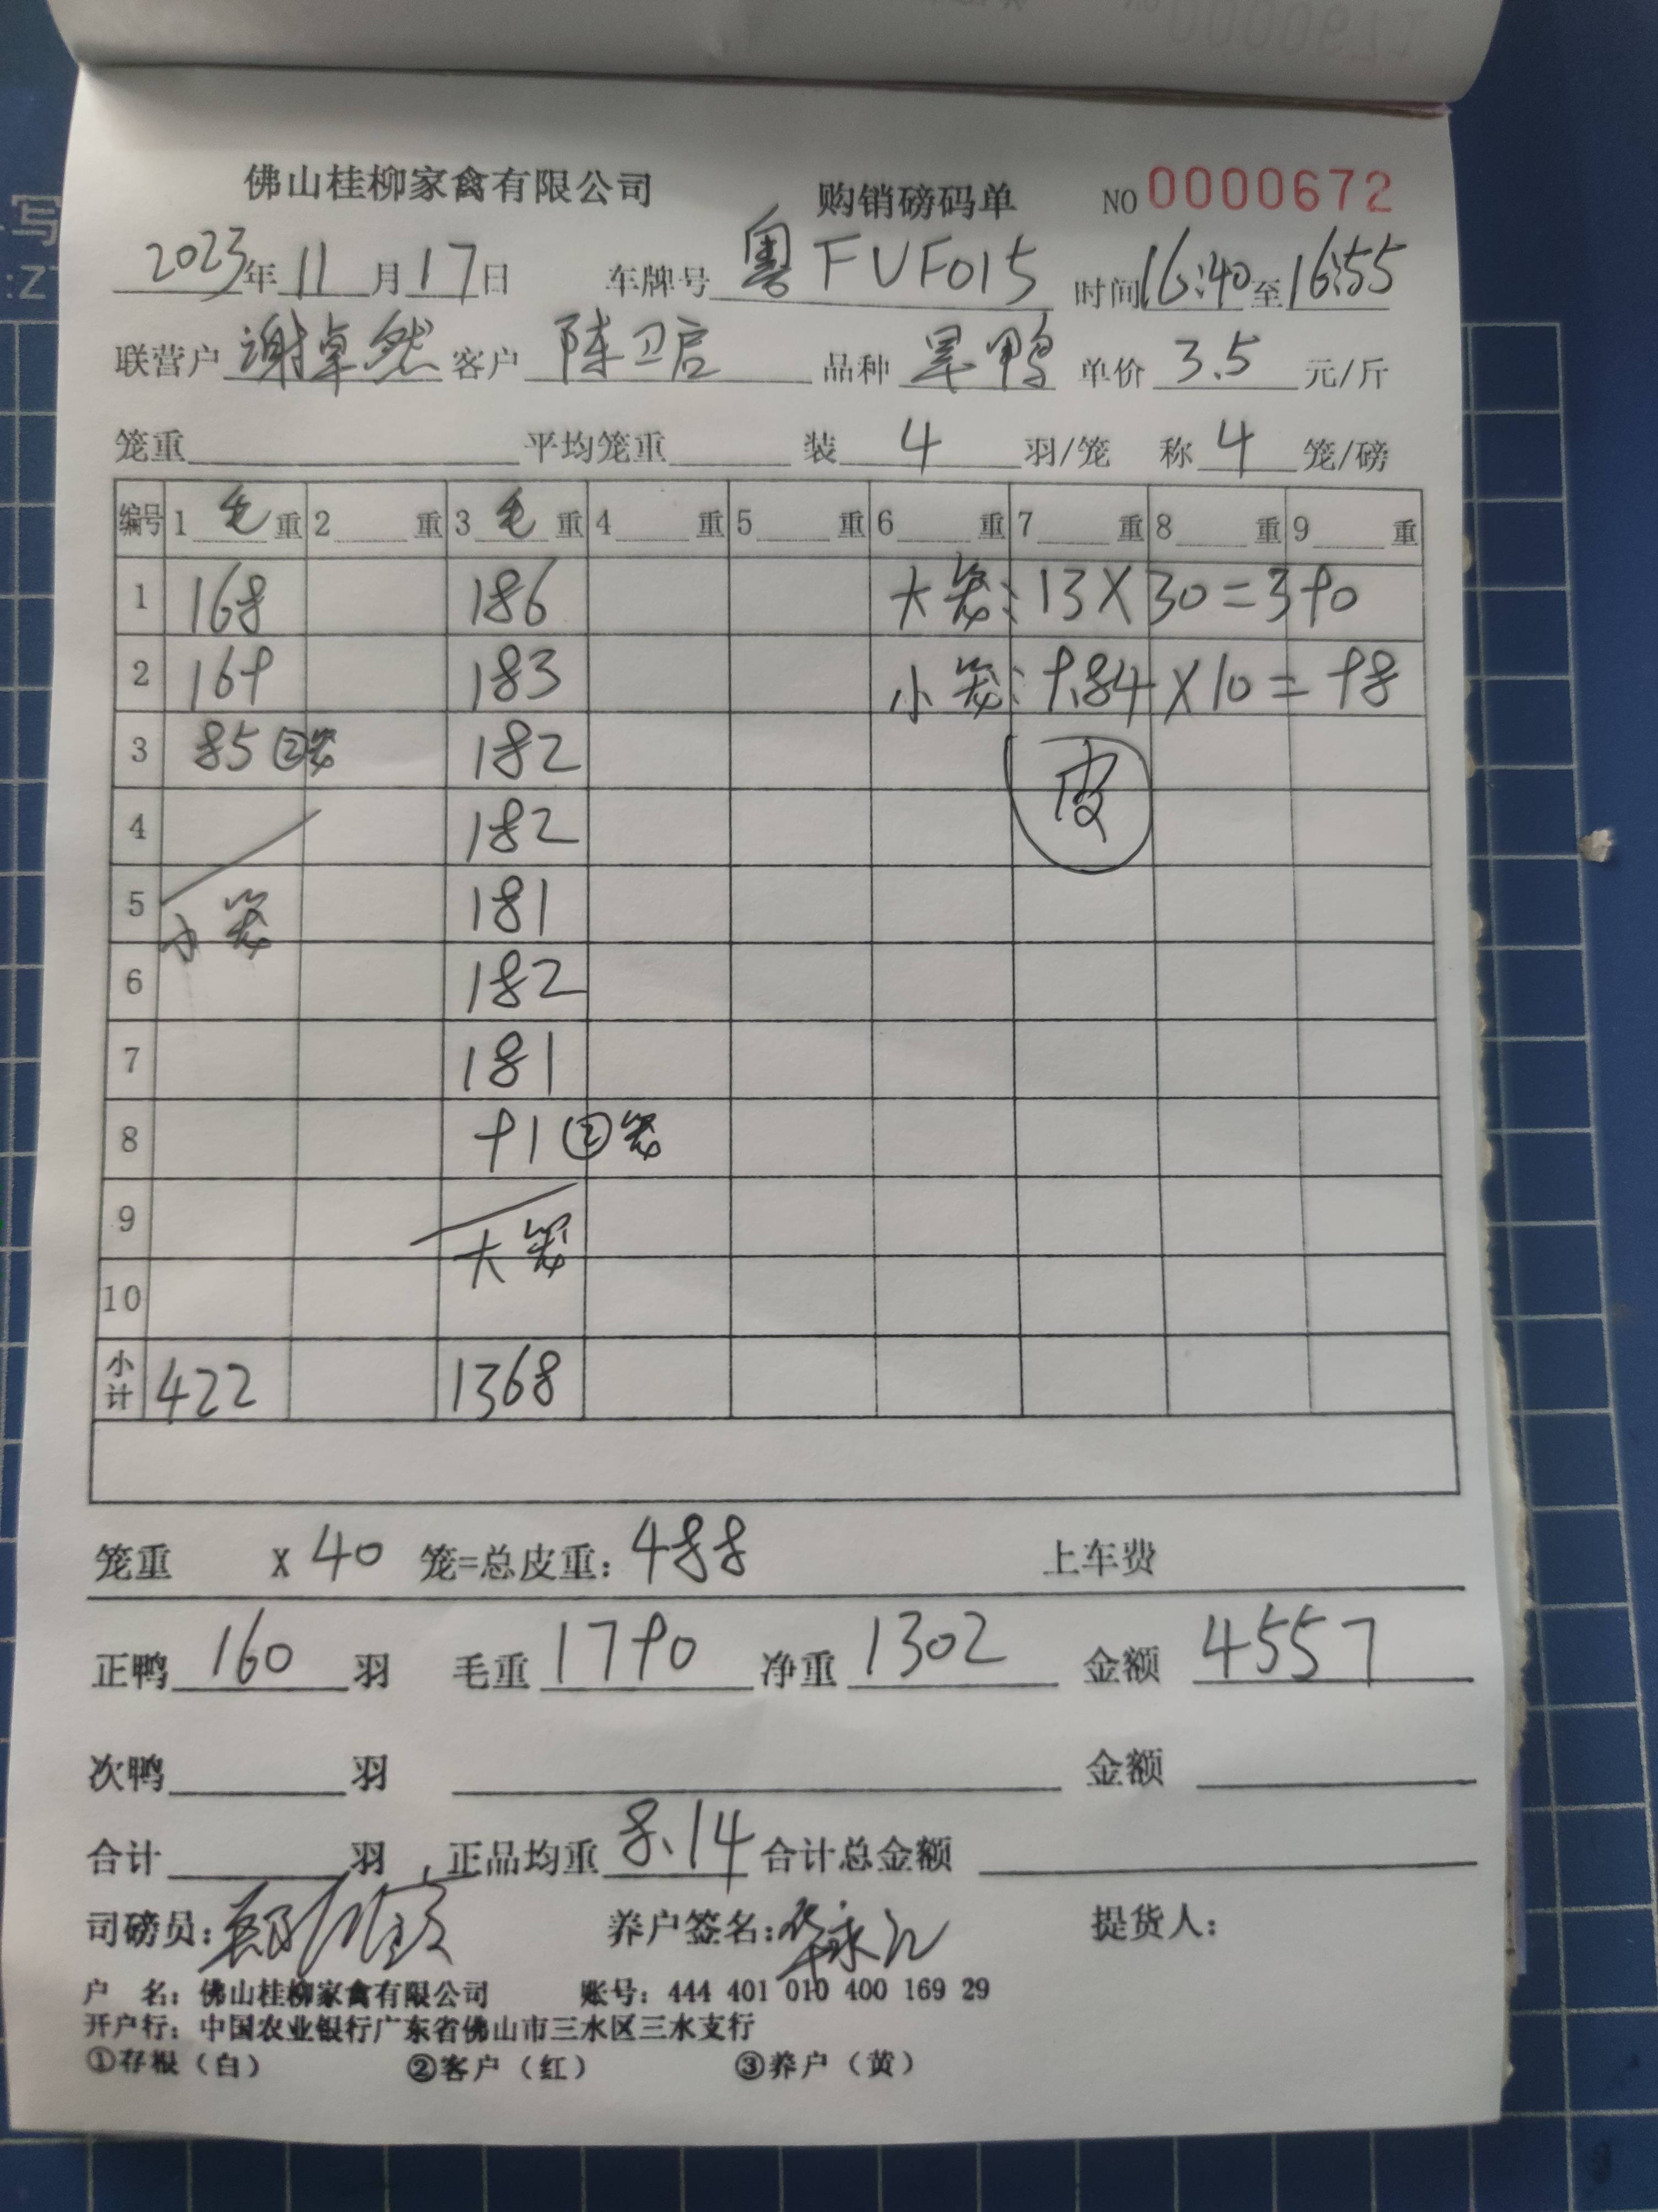 佛山桂柳家禽有限公司 购销磅码单 NO 0000672
2023年11月17日 车牌号 粤FUF015 时间16:40至16:55
联营户 谢卓然 客户 陈卫启 品种 旱鸭 单价 3.5 元/斤
笼重 平均笼重 装 4 羽/笼 称 4 笼/磅
编号 1 毛 重 2 重 3 毛 重 4 重 5 重 6 重 7 重 8 重 9 重
1 168 186 大笼:13X30=390
2 169 183 小笼:9.84X10=98
3 85②笼 182 皮
4 182
5 小笼 181
6 182
7 181
8 91②笼
9 大笼
10
小计 422 1368
笼重 X 40 笼=总皮重: 488 上车费
正鸭 160 羽 毛重 1790 净重 1302 金额 4557
次鸭 羽 金额
合计 羽 正品均重 8.14 合计总金额
司磅员: 养户签名: 提货人:
户 名: 佛山桂柳家禽有限公司 账号: 444 401 010 400 169 29
开户行: 中国农业银行广东省佛山市三水区三水支行
①存根（白） ②客户（红） ③养户（黄）